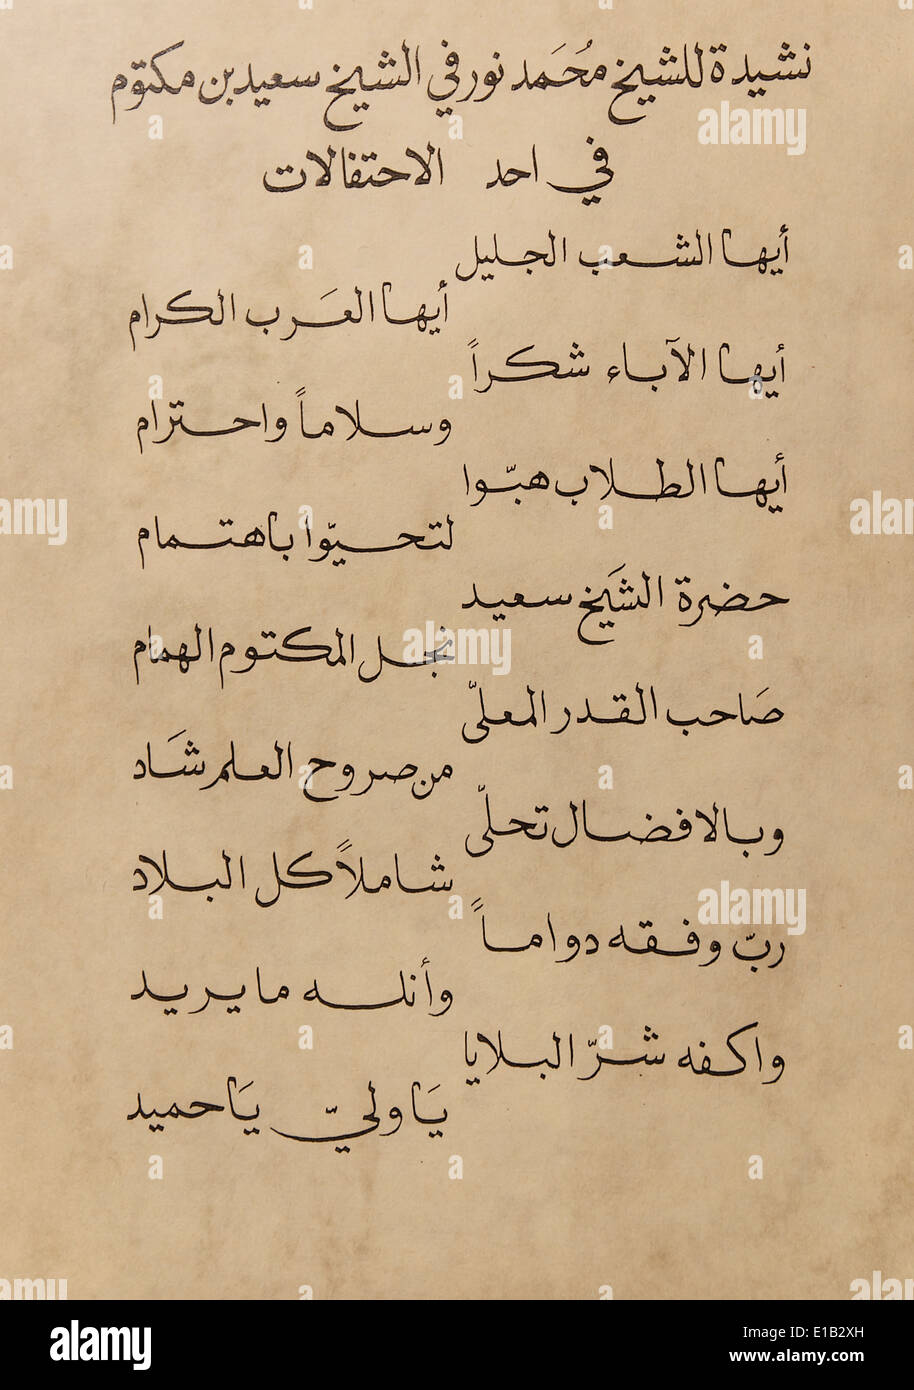 نشيدة للشيخ مُحَمد نور في الشيخ سعيد بن مكتوم
في احد الاحتفالات
أيها الشعب الجليل
أيها العَرب الكرام
أيها الآباء شكراً
وسلاماً واحترام
أيها الطلاب هبّوا
لتحيّوا باهتمام
حضرة الشَيخ سعيد
نجل المكتوم الهمام
صَاحب القدر المعلّى
من صروح العلم شَاد
وبالافضال تحلّى
شاملاً كل البلاد
ربّ وفقه دواماً
وأنله ما يريد
واكفه شرّ البلايا
يَا وليّ يَا حميد
alamy
alamy
Image ID: E1B2XH
www.alamy.com